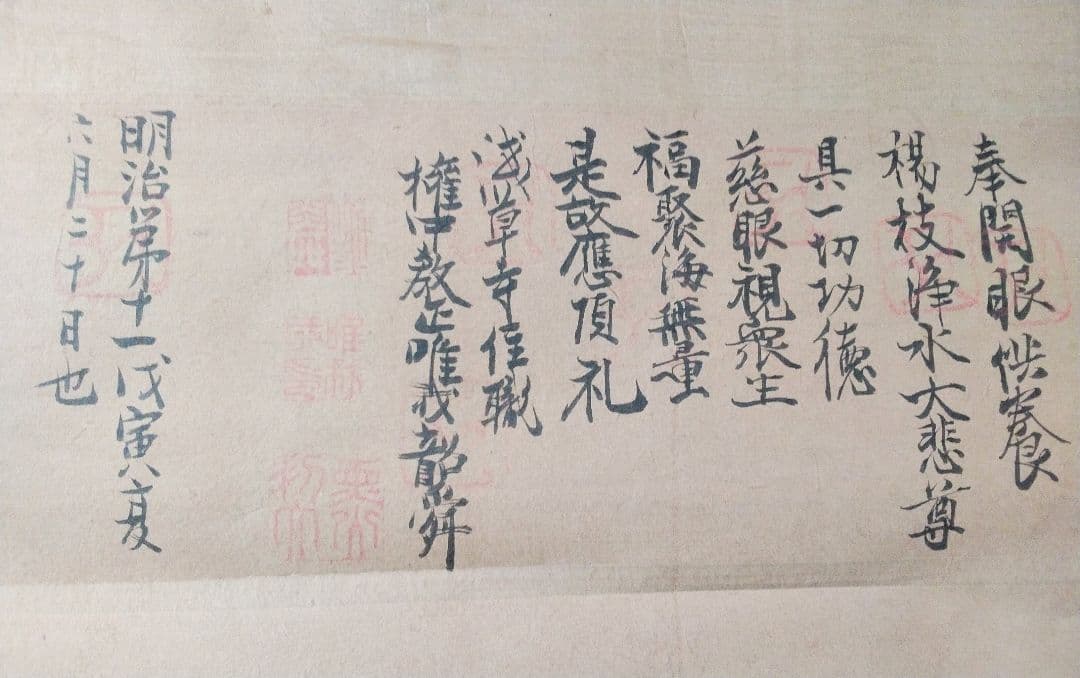 奉開眼供養
楊枝浄水大悲尊
具一切功徳
慈眼視衆生
福聚海無量
是故應頂礼
浅草寺住職
権中教正唯我韶舜
明治第十一戊寅夏
六月二十日也